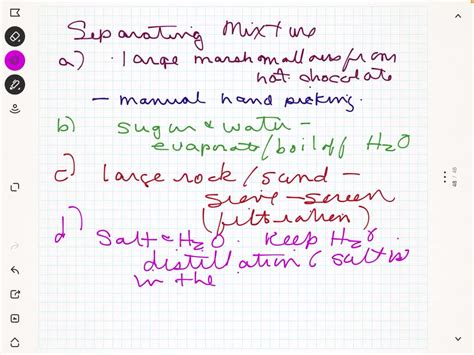 Separating Mixture
a) . large marshmallows from
hot chocolate
- manual hand picking.
b) sugar & water -
evaporate/boil off H2O
c) large rock/sand -
sieve - screen
(filtration)
d) Salt & H2O. Keep H2O
distillation (salt is
in the